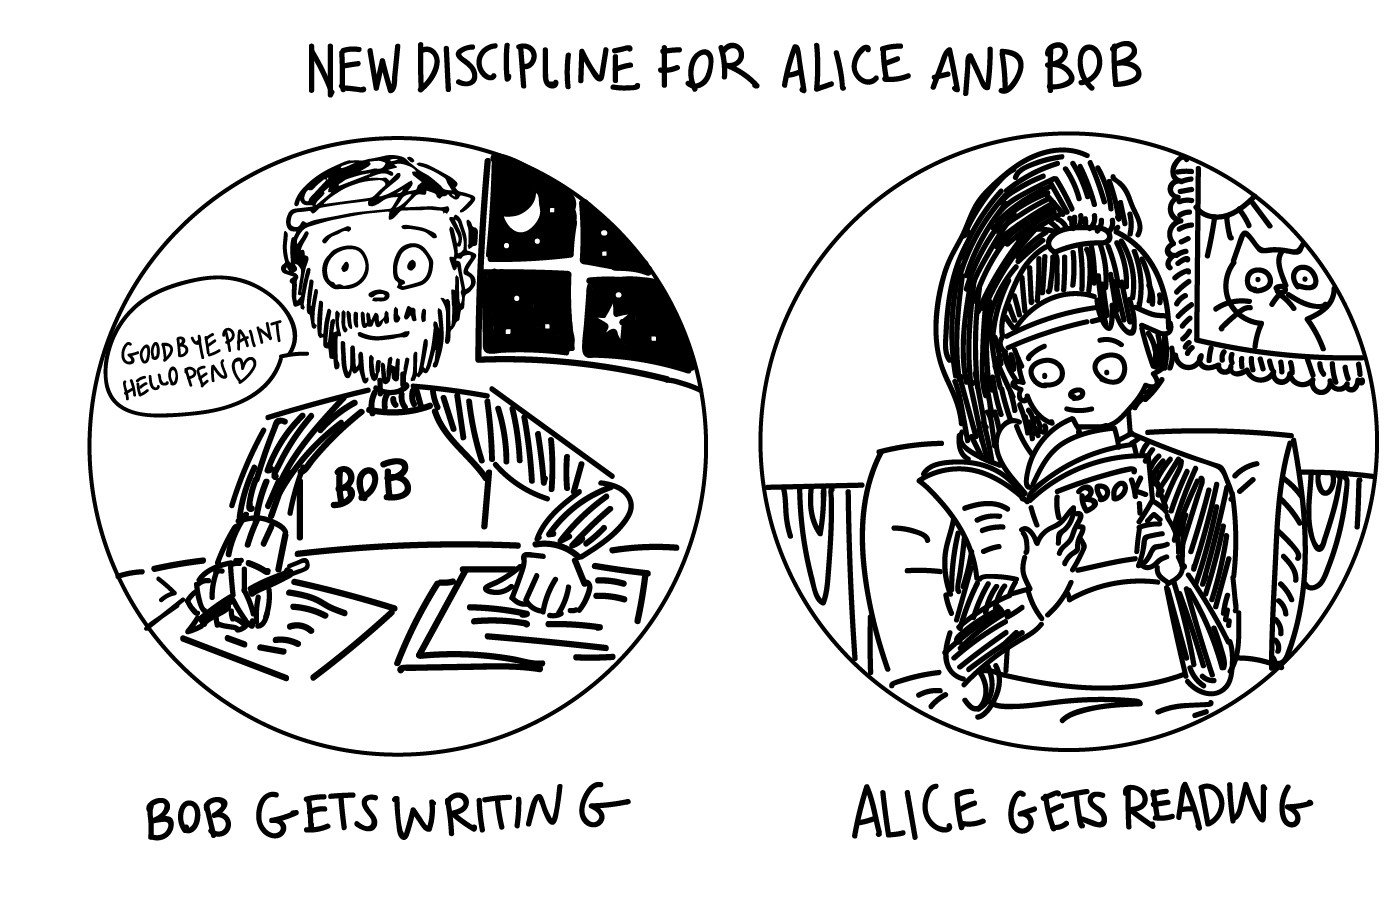 NEW DISCIPLINE FOR ALICE AND BOB
GOODBYE PAINT
HELLO PEN♡
BOB
BOOK
BOB GETS WRITING
ALICE GETS READING